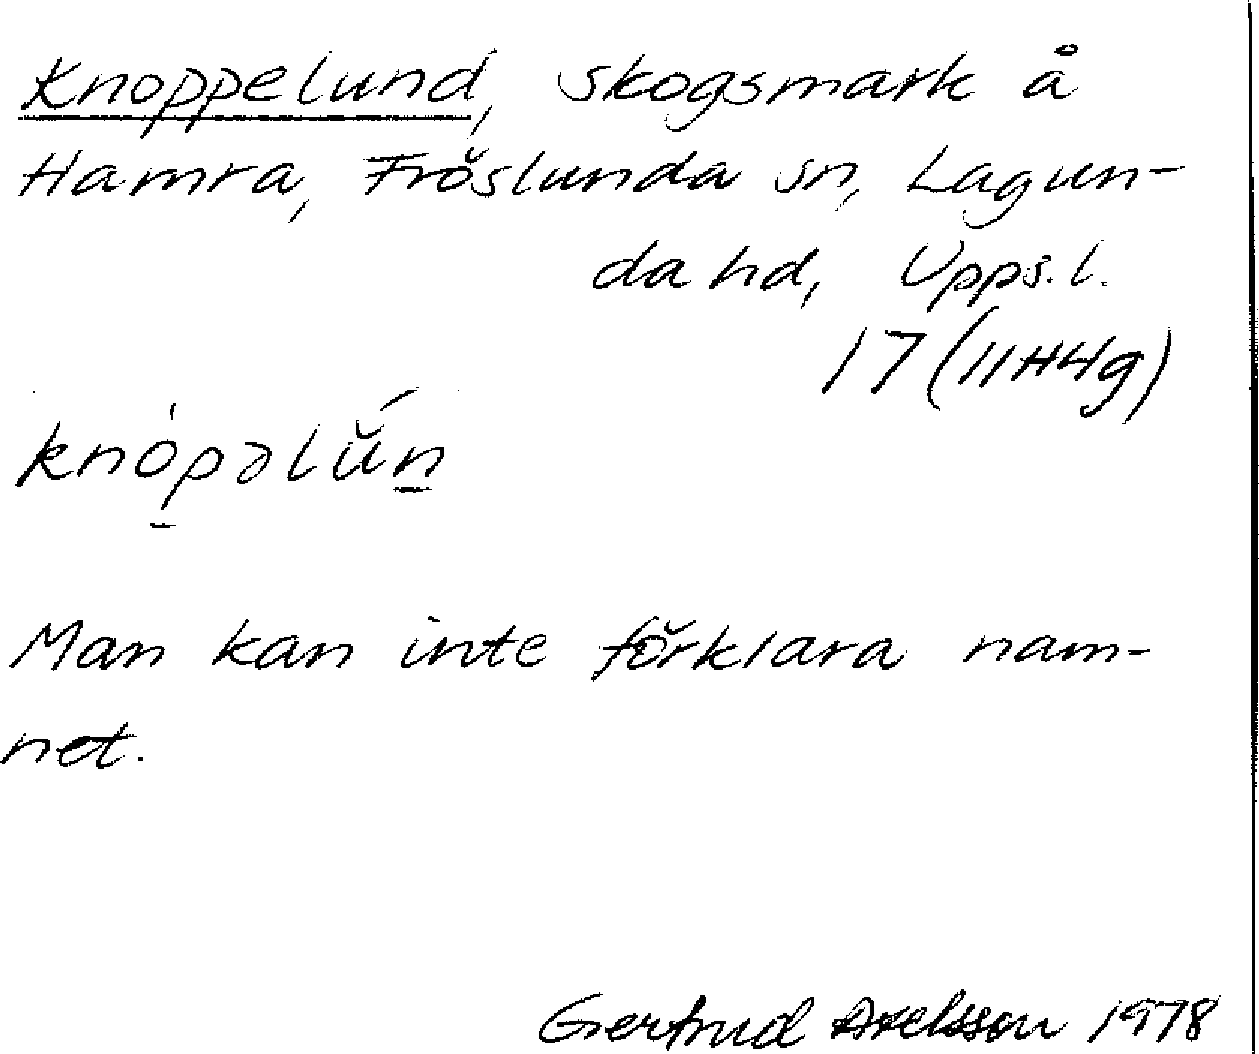 Knoppelund, skogsmark å
Hamra, Fröslunda sn, Lagun-
da hd, Upps. l.
17 (11H4g)
knòp̱əlŭ́ṉ
Man kan inte förklara nam-
net.
Gertrud Axelsson 1978